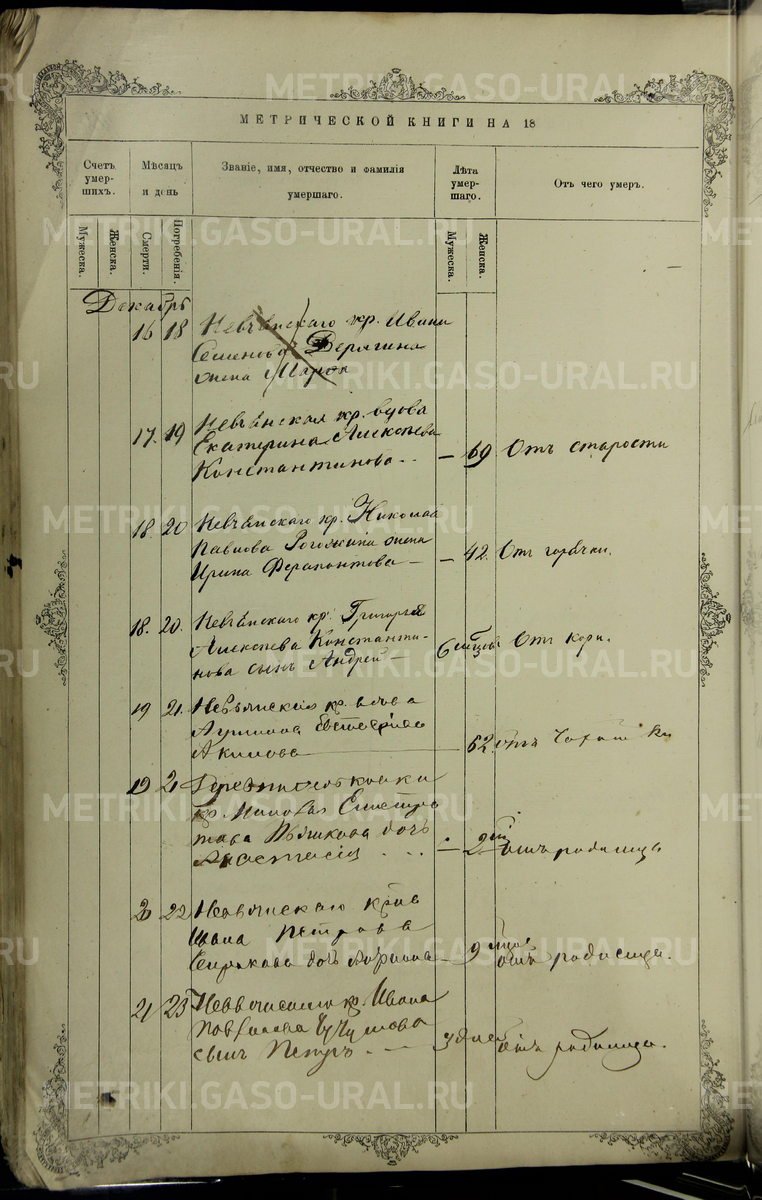 МЕТРИЧЕСКОЙ КНИГИ НА 18
Счетъ умер-шихъ.
Мѣсяцъ и день
Званіе, имя, отчество и фамилія умершаго.
Лѣта умер-шаго.
Отъ чего умеръ.
Мужеска.
Женска.
Смерти.
Погребенія.
Мужеска.
Женска.
Декабрь
16 18 Невьянскаго кр. Ивана
Семенова Дерягина
жена Марѳа
17. 19 Невьянская кр. вдова
Екатерина Алексѣева
Константинова — 69 Отъ старости
18. 20 Невьянскаго кр. Николая
Павлова Рогожкина жена
Ирина Ферапонтова — 42. Отъ горячки.
18. 20. Невьянскаго кр. Григорія
Алексѣева Константи-
нова сынъ Андрей — 6 Отъ кори.
19 21. Невьянская кр. вдова
Акимова 62. отъ чахотки
19 21 кр.
дочь
Анастасія — 2 отъ родимца
20 22 Невьянскаго
Ивана Петрова
дочь — 9 отъ родимца.
21 23 Невьянскаго кр. Ивана
сынъ Петръ. — 3 дней отъ родимца.
METRIKI.GASO-URAL.RU